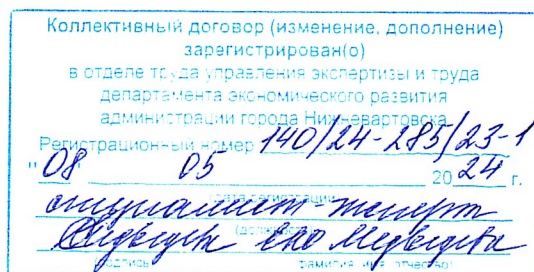 Коллективный договор (изменение, дополнение)
зарегистрирован(о)
в отделе труда управления экспертизы и труда
департамента экономического развития
администрации города Нижневартовска
Регистрационный номер 140/24-285/23-1
"08" 05 2024 г.
дата регистрации
специалист-эксперт
(должность)
Медведева
(подпись) фамилия, имя, отчество)